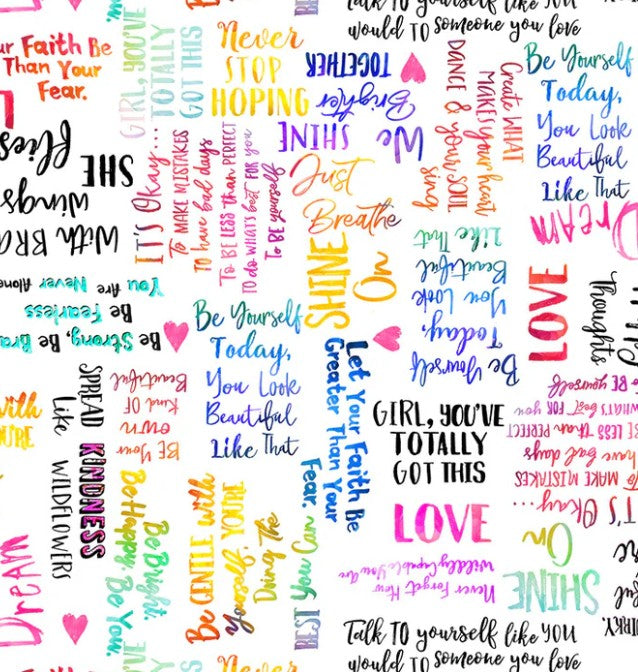 Talk TO yourself like YOU
would TO someone you love
ur Faith Be
Than Your
Fear.
GIRL, YOU'VE
TOTALLY
GOT THIS
Never
STOP
HOPING
We
SHINE
Brighter
TOGETHER
Create WHAT
MAKES your heart
sing
DANCE & your SOUL
Be Yourself
Today,
You Look
Beautiful
Like That
With BRA
wings
SHE
flies
IT'S Okay...
To MAKE MISTAKES
To have bad days
To BE LESS than PERFECT
TO do WHAT'S best FOR you
To BE yourself
Just
Breathe
SHINE
On
Be Yourself
Today,
You Look
Beautiful
Like That
Dream
LOVE
Thoughts
Be Strong, Be Bra
Be Fearless
You Are Never Alone
Be Yourself
Today,
You Look
Beautiful
Like That
Let Your Faith Be
Greater Than Your
Fear.
GIRL, YOU'VE
TOTALLY
GOT THIS
LOVE
Never Forget How
Wildly Capable You Are
IT'S Okay...
To MAKE MISTAKES
To have bad days
BE LESS than PERFECT
WHAT'S best FOR you
To BE yourself
SHINE
On
With
SPREAD KINDNESS
Like WILDFLOWERS
BE Your
OWN
Kind OF
Beautiful
Be Bright.
Be Happy. Be You.
Be GENTLE with
Yourself, YOU'RE
Doing The
BEST You Can
Dream
Talk TO yourself like YOU
would TO someone you love
Never